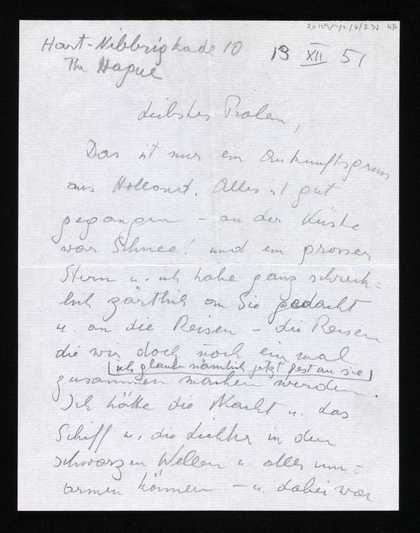 Hart-Nibbrigkade 10
The Hague
13 XII 51
Liebstes
Das ist nur ein Ankunftsgruss
aus Holland. Alles ist gut
gegangen – an der Küste
war Schnee! und ein grosser
Stern u. ich habe ganz schreck-
lich zärtlich an Sie gedacht
u. an die Reisen – die Reisen
die wir doch noch ein mal
(ich glaube nämlich jetzt fest an sie)
zusammen machen werden.
Ich hätte die Nacht u. das
Schiff u. die Lichter in den
schwarzen Wellen u. alles um-
armen können – u. dabei war